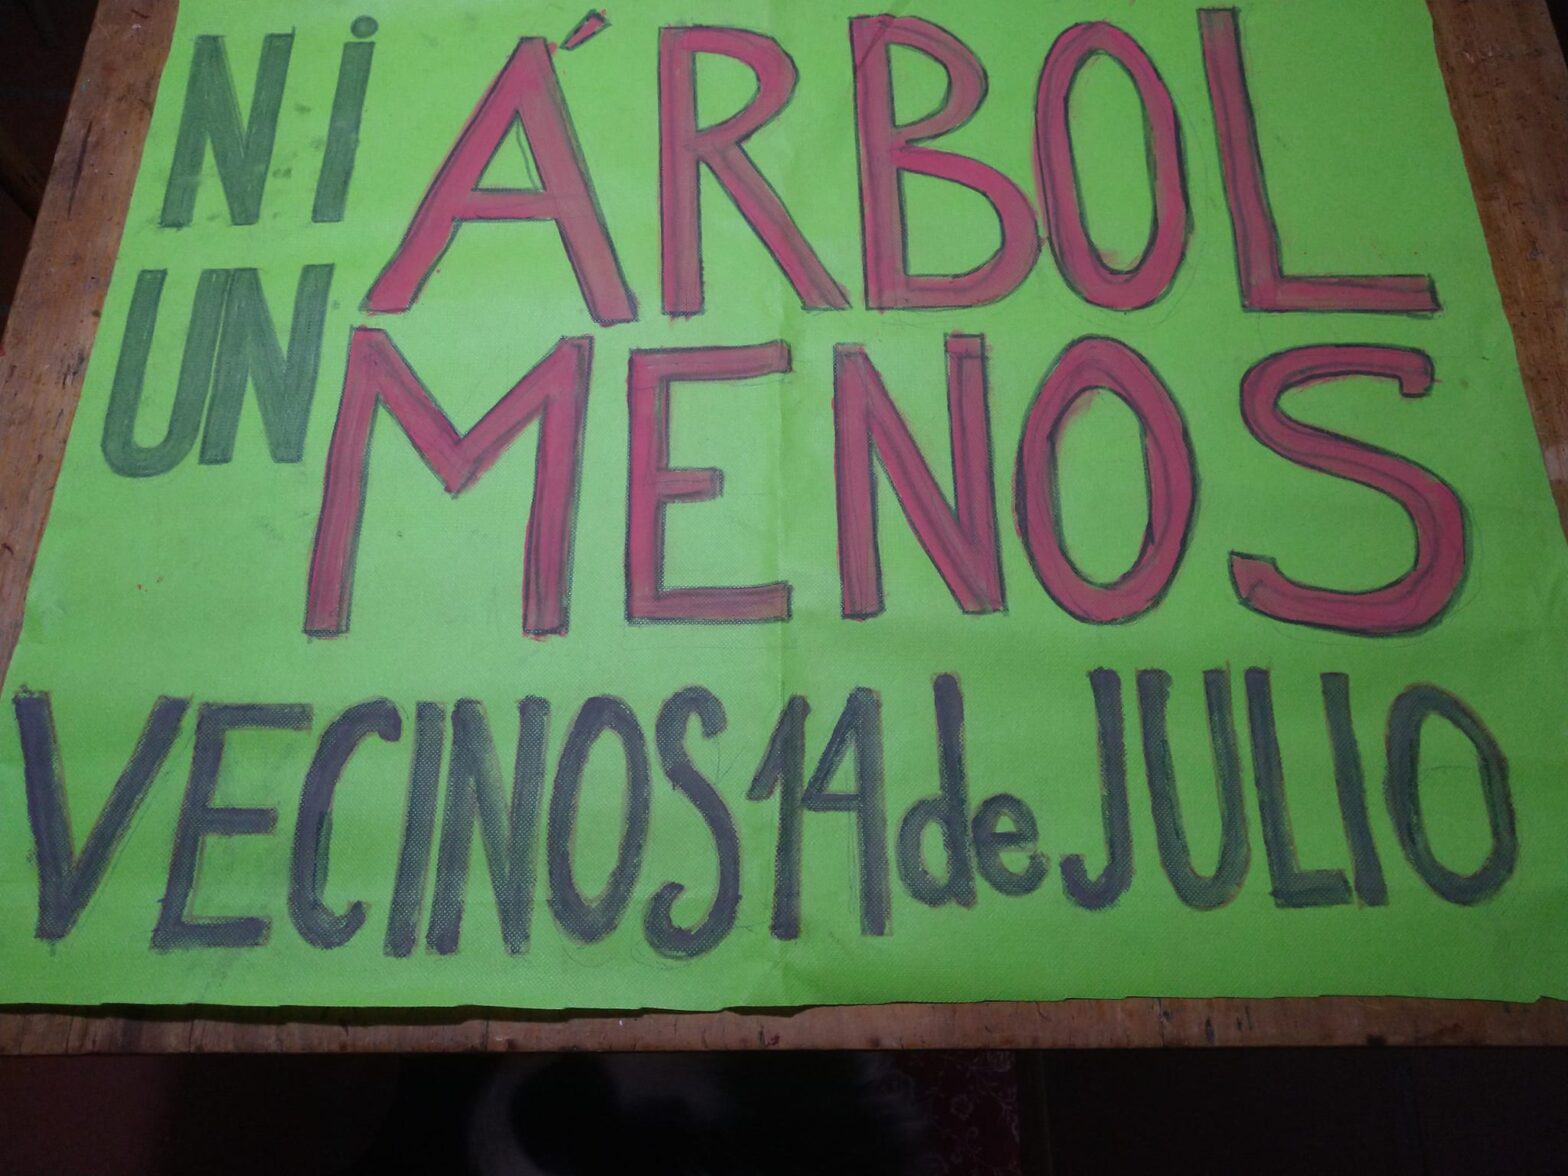 Ni ÁRBOL
UN MENOS
VECINOS 14 de JULIO